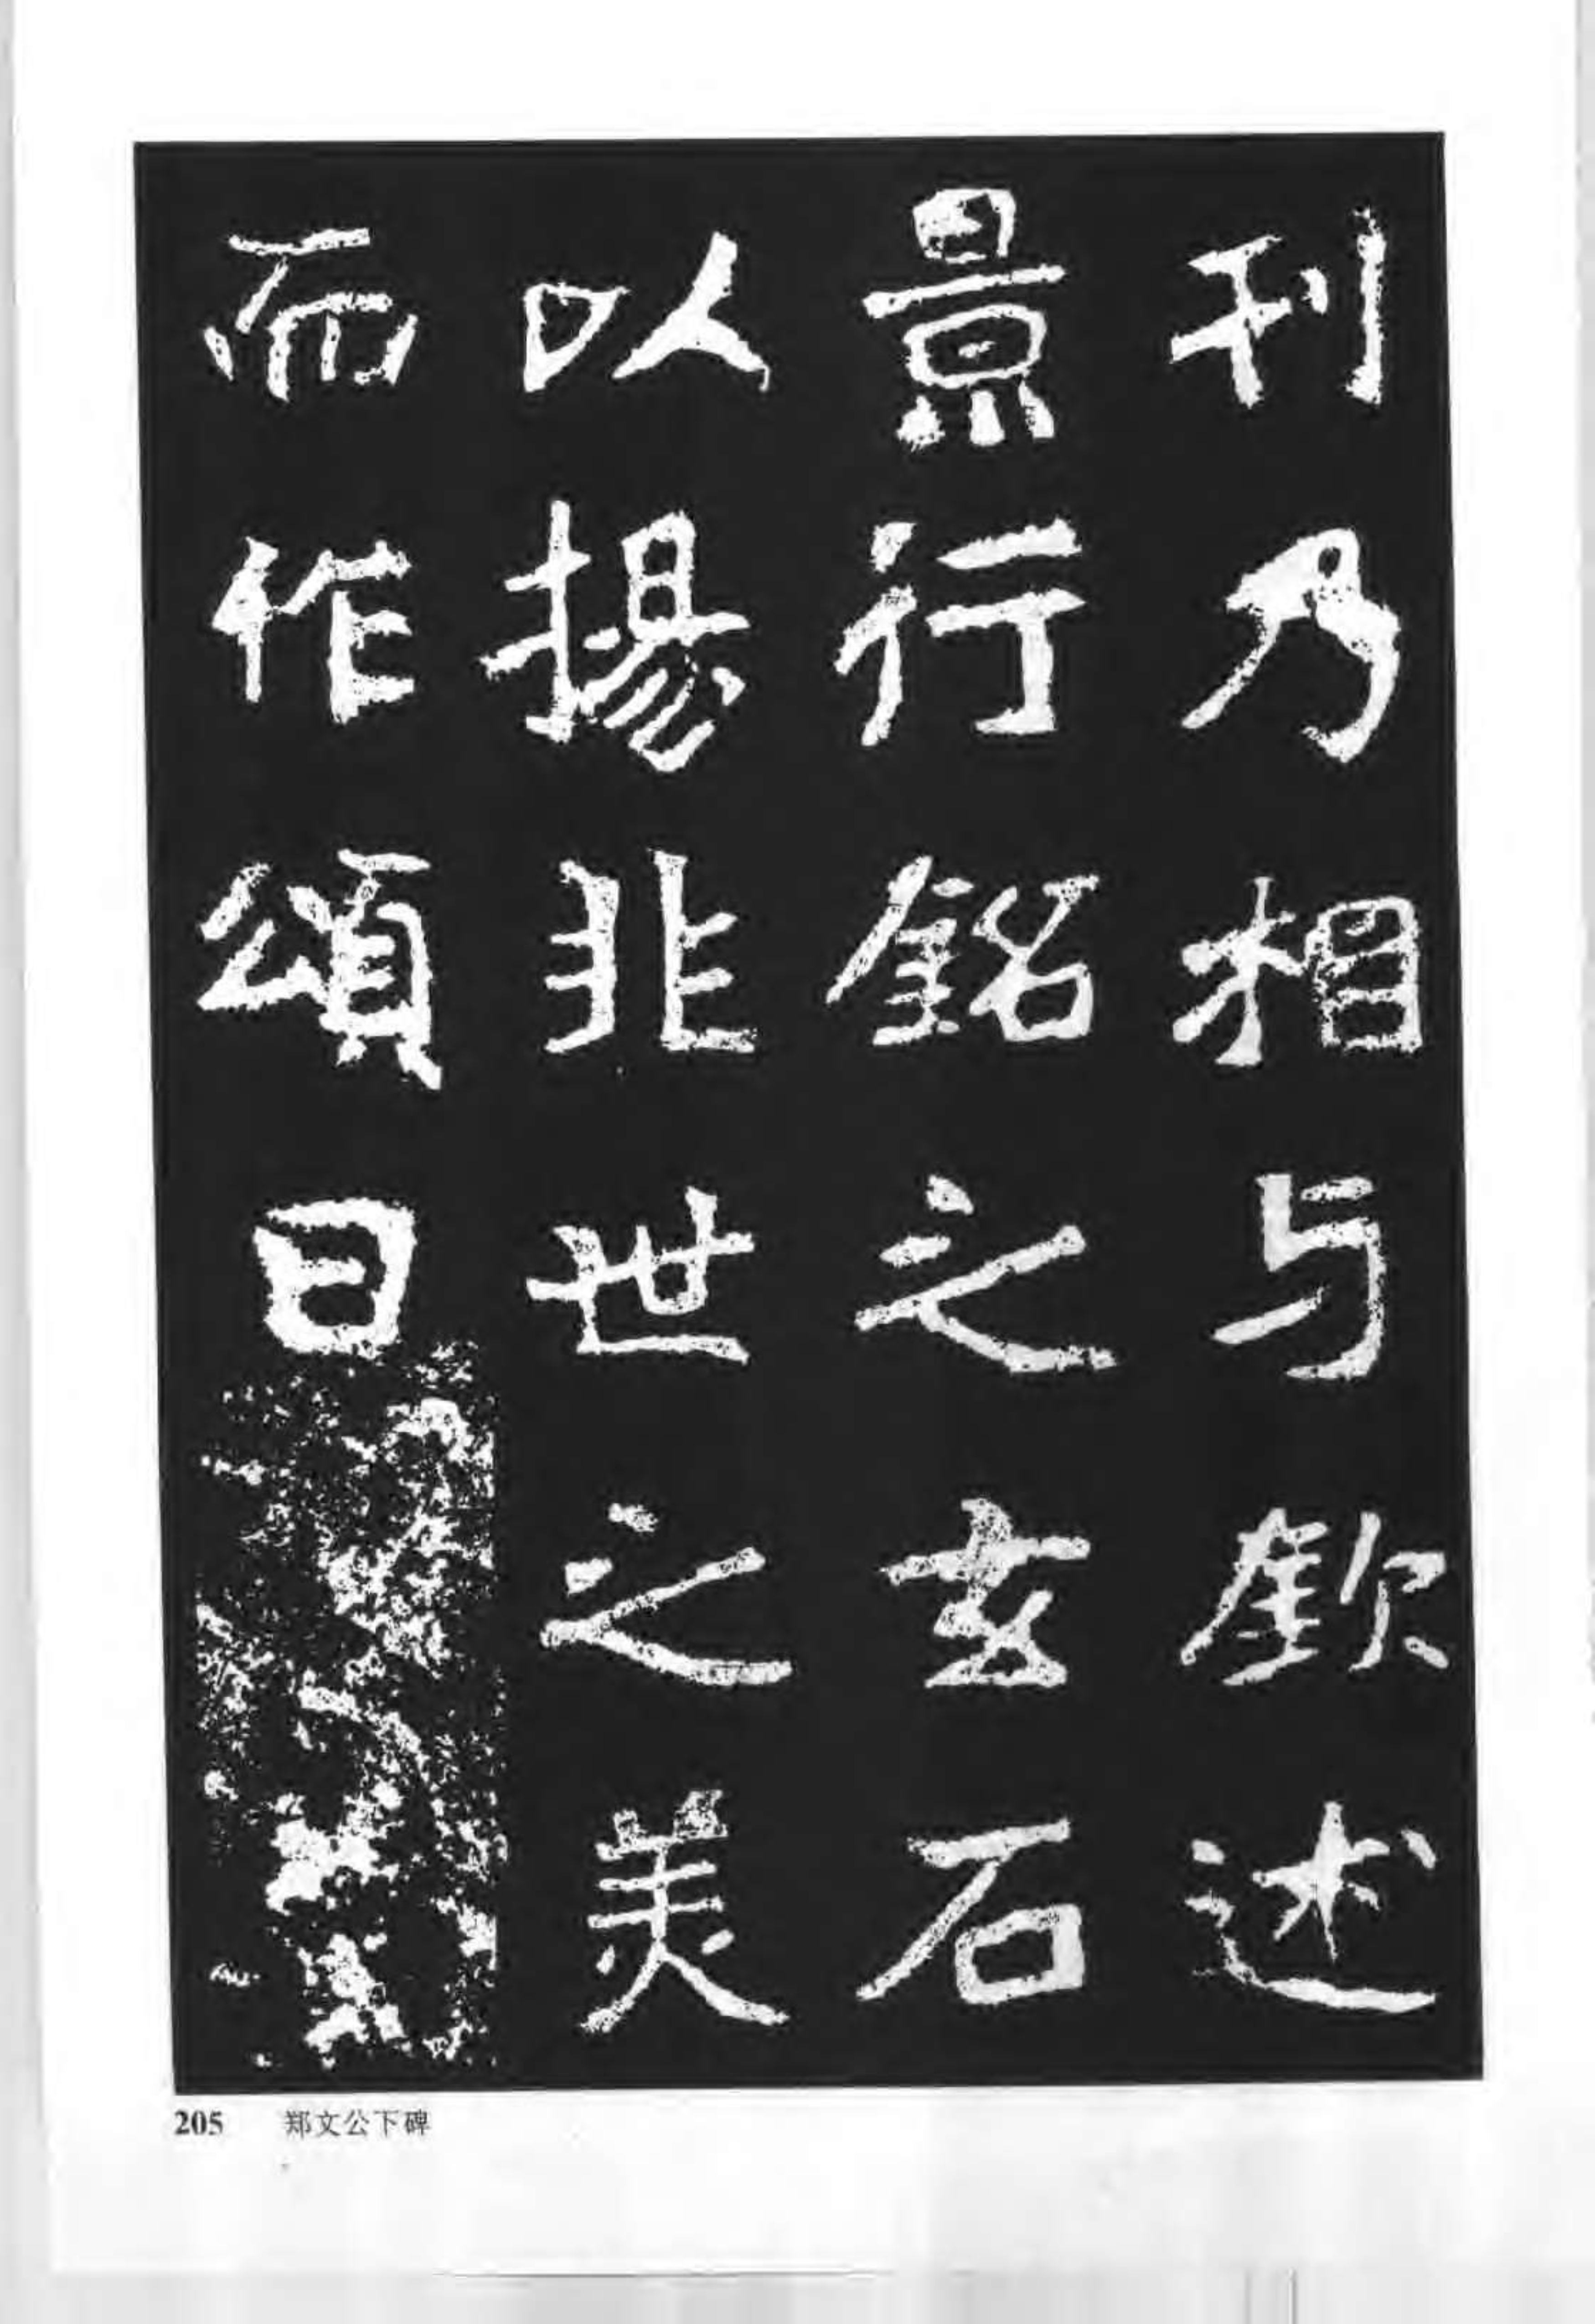 刊乃相与欽述
景行銘之玄石
以揚非世之美
而作頌曰
205 郑文公下碑